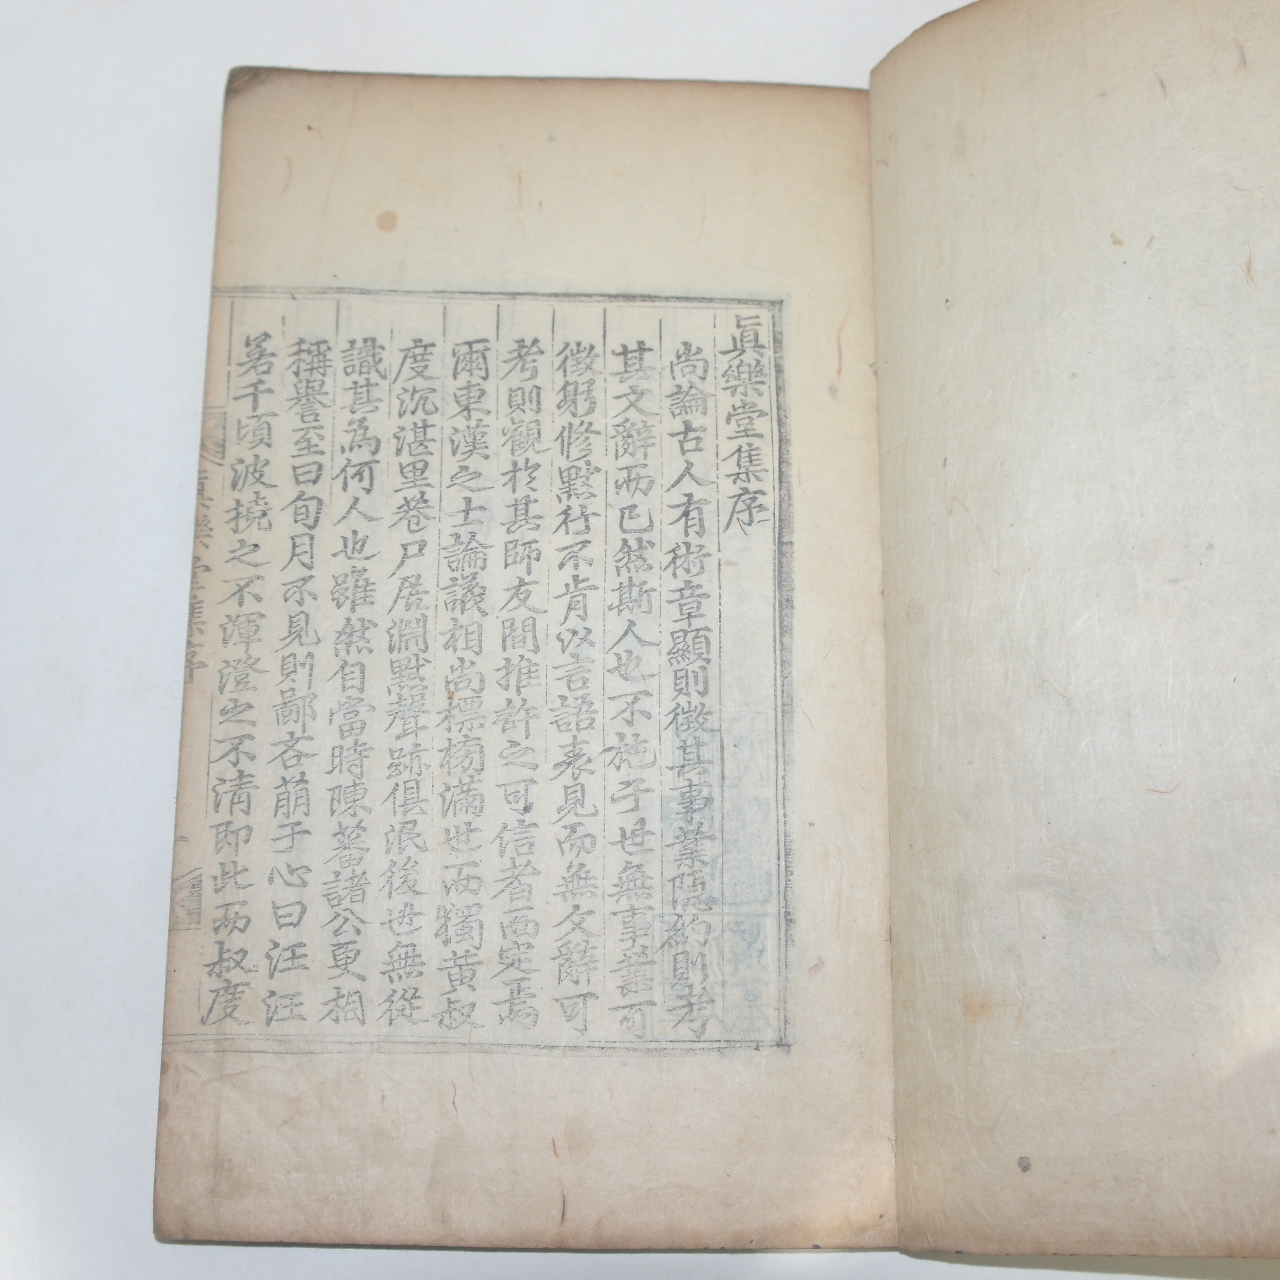 眞樂堂集序
尚論古人有術章顯則徵其事業隱約則考
其文辭而已然斯人也不施于世無事業可
徵躬修默行不肯以言語表見而無文辭可
考則觀於其師友間推許之可信者而定焉
爾東漢之士論議相尚標榜滿世而獨黃叔
度沉湛里巷尸居淵默聲跡俱泯後世無從
識其為何人也雖然自當時陳蕃諸公更相
稱譽至曰旬月不見則鄙吝萠于心曰汪汪
若千頃波撓之不渾澄之不清即此而叔度
眞樂堂集序